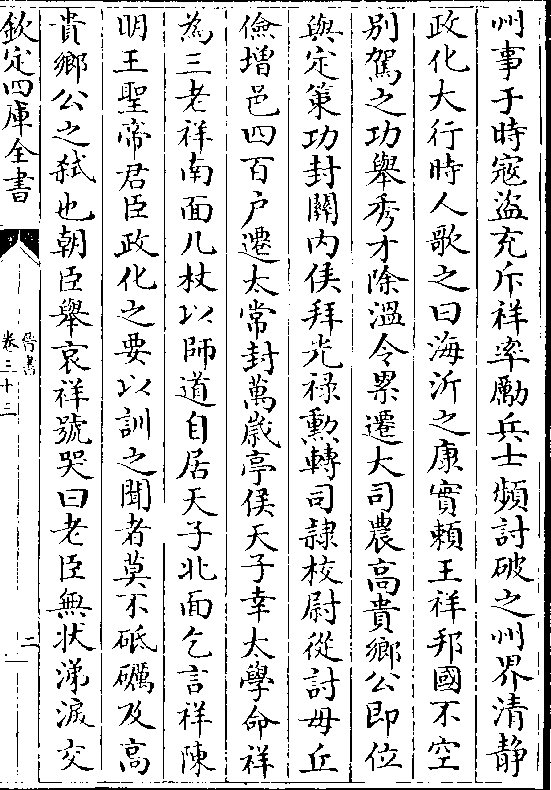 州事于時寇盜充斥祥率勵兵士頻討破之州界清静
政化大行時人歌之曰海沂之康實賴王祥邦國不空
别駕之功舉秀才除溫令累遷大司農高貴鄉公即位
與定策功封關内侯拜光禄勲轉司隷校尉從討毋丘
儉増邑四百户遷太常封萬歲亭侯天子幸太學命祥
為三老祥南面几杖以師道自居天子北面乞言祥陳
明王聖帝君臣政化之要以訓之聞者莫不砥礪及高
貴鄉公之弑也朝臣舉哀祥號哭曰老臣無狀涕淚交
欽定四庫全書
晉書
卷三十三
二